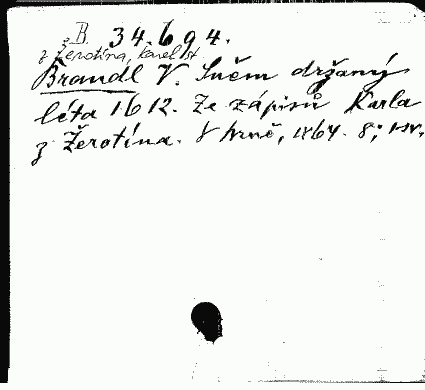 B 34.694.
z Žerotína, Karel st.
Brandl V. Sněm držaný
léta 1612. Ze zápisů Karla
z Žerotína. V Brně, 1864. 8; 1 sv.